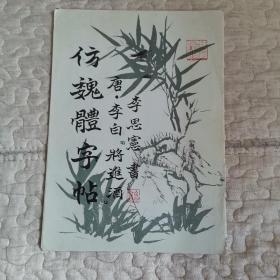 李思憲書
唐·李白《將進酒》
仿魏體字帖